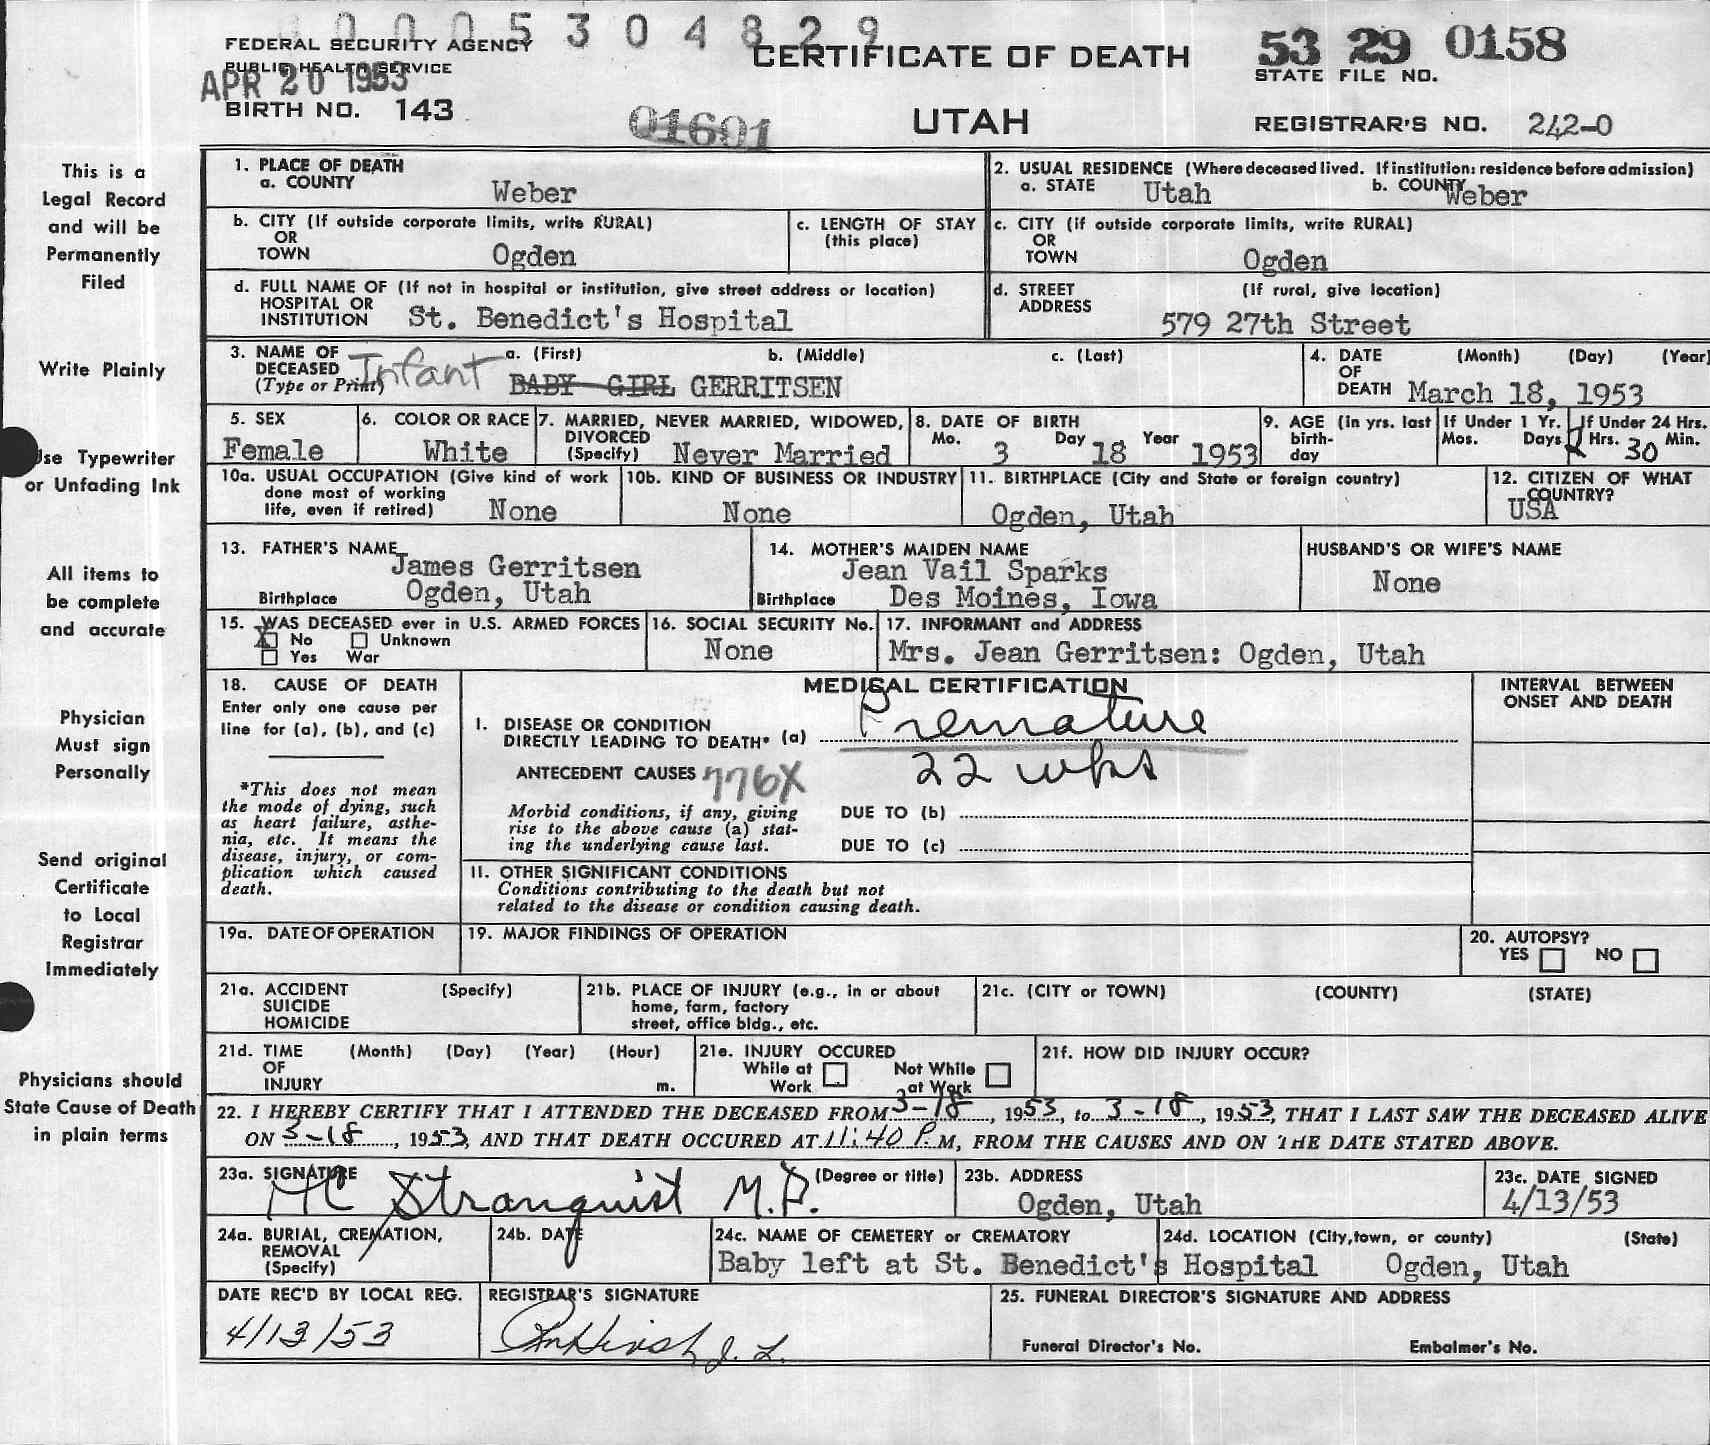 0005304829
FEDERAL SECURITY AGENCY
PUBLIC HEALTH SERVICE
APR 20 1953
BIRTH NO. 143
01601
CERTIFICATE OF DEATH
UTAH
53 29 0158
STATE FILE NO.
REGISTRAR'S NO. 242-0
This is a
Legal Record
and will be
Permanently
Filed
Write Plainly
Use Typewriter
or Unfading Ink
All items to
be complete
and accurate
Physician
Must sign
Personally
Send original
Certificate
to Local
Registrar
Immediately
Physicians should
State Cause of Death
in plain terms
1. PLACE OF DEATH
a. COUNTY Weber
2. USUAL RESIDENCE (Where deceased lived. If institution: residence before admission)
a. STATE Utah b. COUNTY Weber
b. CITY (If outside corporate limits, write RURAL)
OR
TOWN Ogden
c. LENGTH OF STAY
(this place)
c. CITY (if outside corporate limits, write RURAL)
OR
TOWN Ogden
d. FULL NAME OF (If not in hospital or institution, give street address or location)
HOSPITAL OR
INSTITUTION St. Benedict's Hospital
d. STREET (If rural, give location)
ADDRESS
579 27th Street
3. NAME OF a. (First) b. (Middle) c. (Last)
DECEASED
(Type or Print) Infant BABY GIRL GERRITSEN
4. DATE (Month) (Day) (Year)
OF
DEATH March 18, 1953
5. SEX
Female
6. COLOR OR RACE
White
7. MARRIED, NEVER MARRIED, WIDOWED,
DIVORCED
(Specify) Never Married
8. DATE OF BIRTH
Mo. Day Year
3 18 1953
9. AGE (in yrs. last
birth-
day
If Under 1 Yr.
Mos. Days
If Under 24 Hrs.
Hrs. 30 Min.
10a. USUAL OCCUPATION (Give kind of work
done most of working
life, even if retired) None
10b. KIND OF BUSINESS OR INDUSTRY
None
11. BIRTHPLACE (City and State or foreign country)
Ogden, Utah
12. CITIZEN OF WHAT
COUNTRY?
USA
13. FATHER'S NAME
James Gerritsen
Birthplace Ogden, Utah
14. MOTHER'S MAIDEN NAME
Jean Vail Sparks
Birthplace Des Moines, Iowa
HUSBAND'S OR WIFE'S NAME
None
15. WAS DECEASED ever in U.S. ARMED FORCES
X No Unknown
Yes War
16. SOCIAL SECURITY No.
None
17. INFORMANT and ADDRESS
Mrs. Jean Gerritsen: Ogden, Utah
18. CAUSE OF DEATH
Enter only one cause per
line for (a), (b), and (c)
*This does not mean
the mode of dying, such
as heart failure, asthe-
nia, etc. It means the
disease, injury, or com-
plication which caused
death.
MEDICAL CERTIFICATION
I. DISEASE OR CONDITION
DIRECTLY LEADING TO DEATH* (a) Premature
22 wks
ANTECEDENT CAUSES 776X
Morbid conditions, if any, giving
rise to the above cause (a) stat-
ing the underlying cause last.
DUE TO (b)
DUE TO (c)
II. OTHER SIGNIFICANT CONDITIONS
Conditions contributing to the death but not
related to the disease or condition causing death.
INTERVAL BETWEEN
ONSET AND DEATH
19a. DATE OF OPERATION
19. MAJOR FINDINGS OF OPERATION
20. AUTOPSY?
YES NO
21a. ACCIDENT (Specify)
SUICIDE
HOMICIDE
21b. PLACE OF INJURY (e.g., in or about
home, farm, factory
street, office bldg., etc.
21c. (CITY or TOWN) (COUNTY) (STATE)
21d. TIME (Month) (Day) (Year) (Hour)
OF
INJURY m.
21e. INJURY OCCURED
While at Work
Not While at Work
21f. HOW DID INJURY OCCUR?
22. I HEREBY CERTIFY THAT I ATTENDED THE DECEASED FROM 3-18, 1953, to 3-18, 1953, THAT I LAST SAW THE DECEASED ALIVE
ON 3-18, 1953, AND THAT DEATH OCCURED AT 11:40 P.M, FROM THE CAUSES AND ON THE DATE STATED ABOVE.
23a. SIGNATURE (Degree or title)
HC Stranquist M.D.
23b. ADDRESS
Ogden, Utah
23c. DATE SIGNED
4/13/53
24a. BURIAL, CREMATION,
REMOVAL
(Specify)
24b. DATE
24c. NAME OF CEMETERY or CREMATORY
24d. LOCATION (City, town, or county) (State)
Baby left at St. Benedict's Hospital Ogden, Utah
DATE REC'D BY LOCAL REG.
4/13/53
REGISTRAR'S SIGNATURE
25. FUNERAL DIRECTOR'S SIGNATURE AND ADDRESS
Funeral Director's No. Embalmer's No.